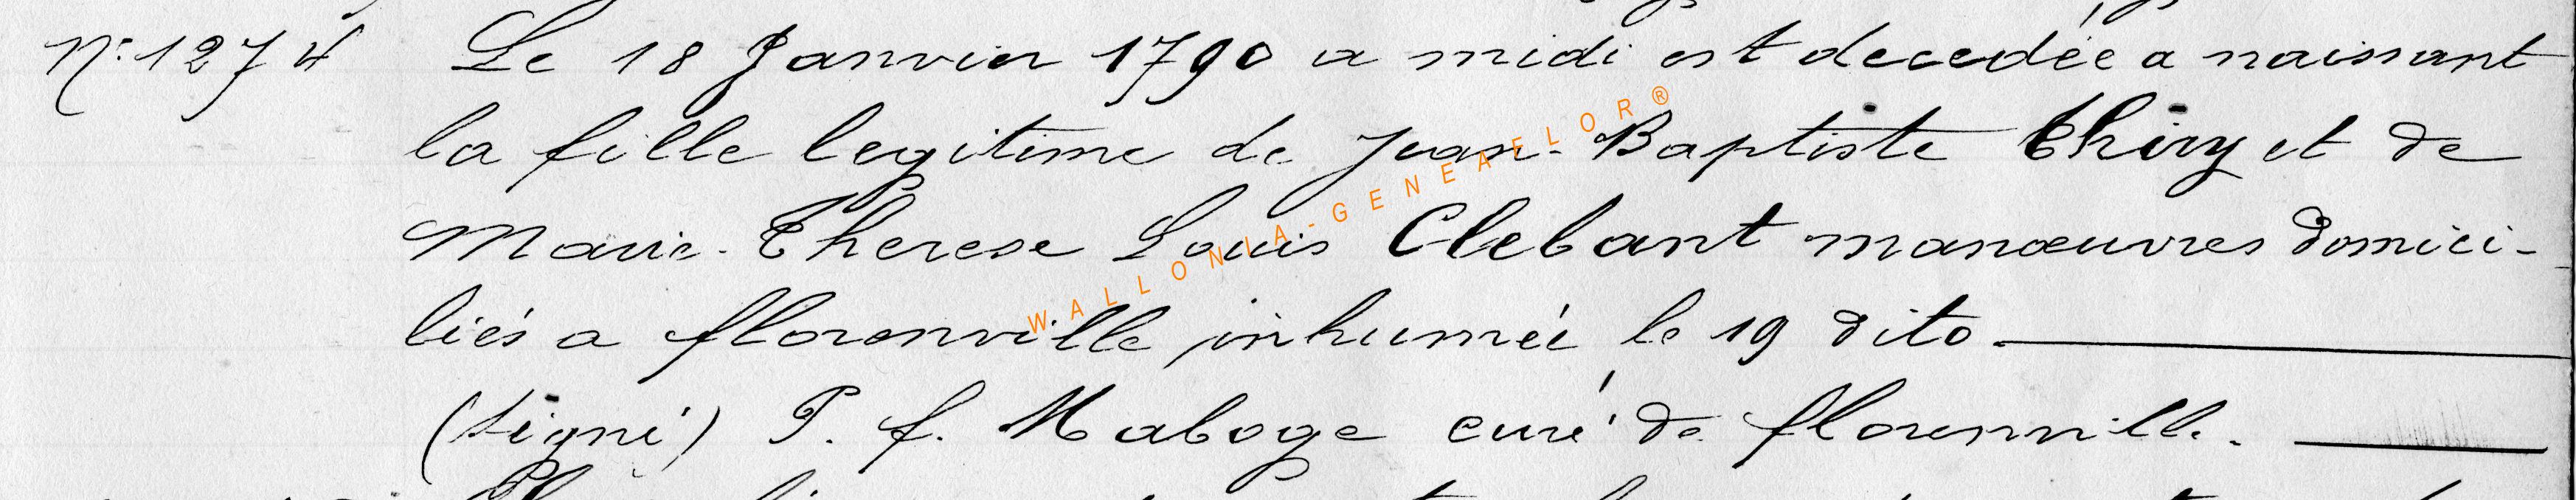 N° 1274 Le 18 Janvier 1790 a midi est decedée a naissant
la fille legitime de Jean-Baptiste Thiry et de
Marie-Therese Louis Clebant manœuvres domici-
liés a florenville inhumée le 19 dito.
(signé) P. f. Maboge curé de florenville.
WALLONIA-GENEAFLOR®